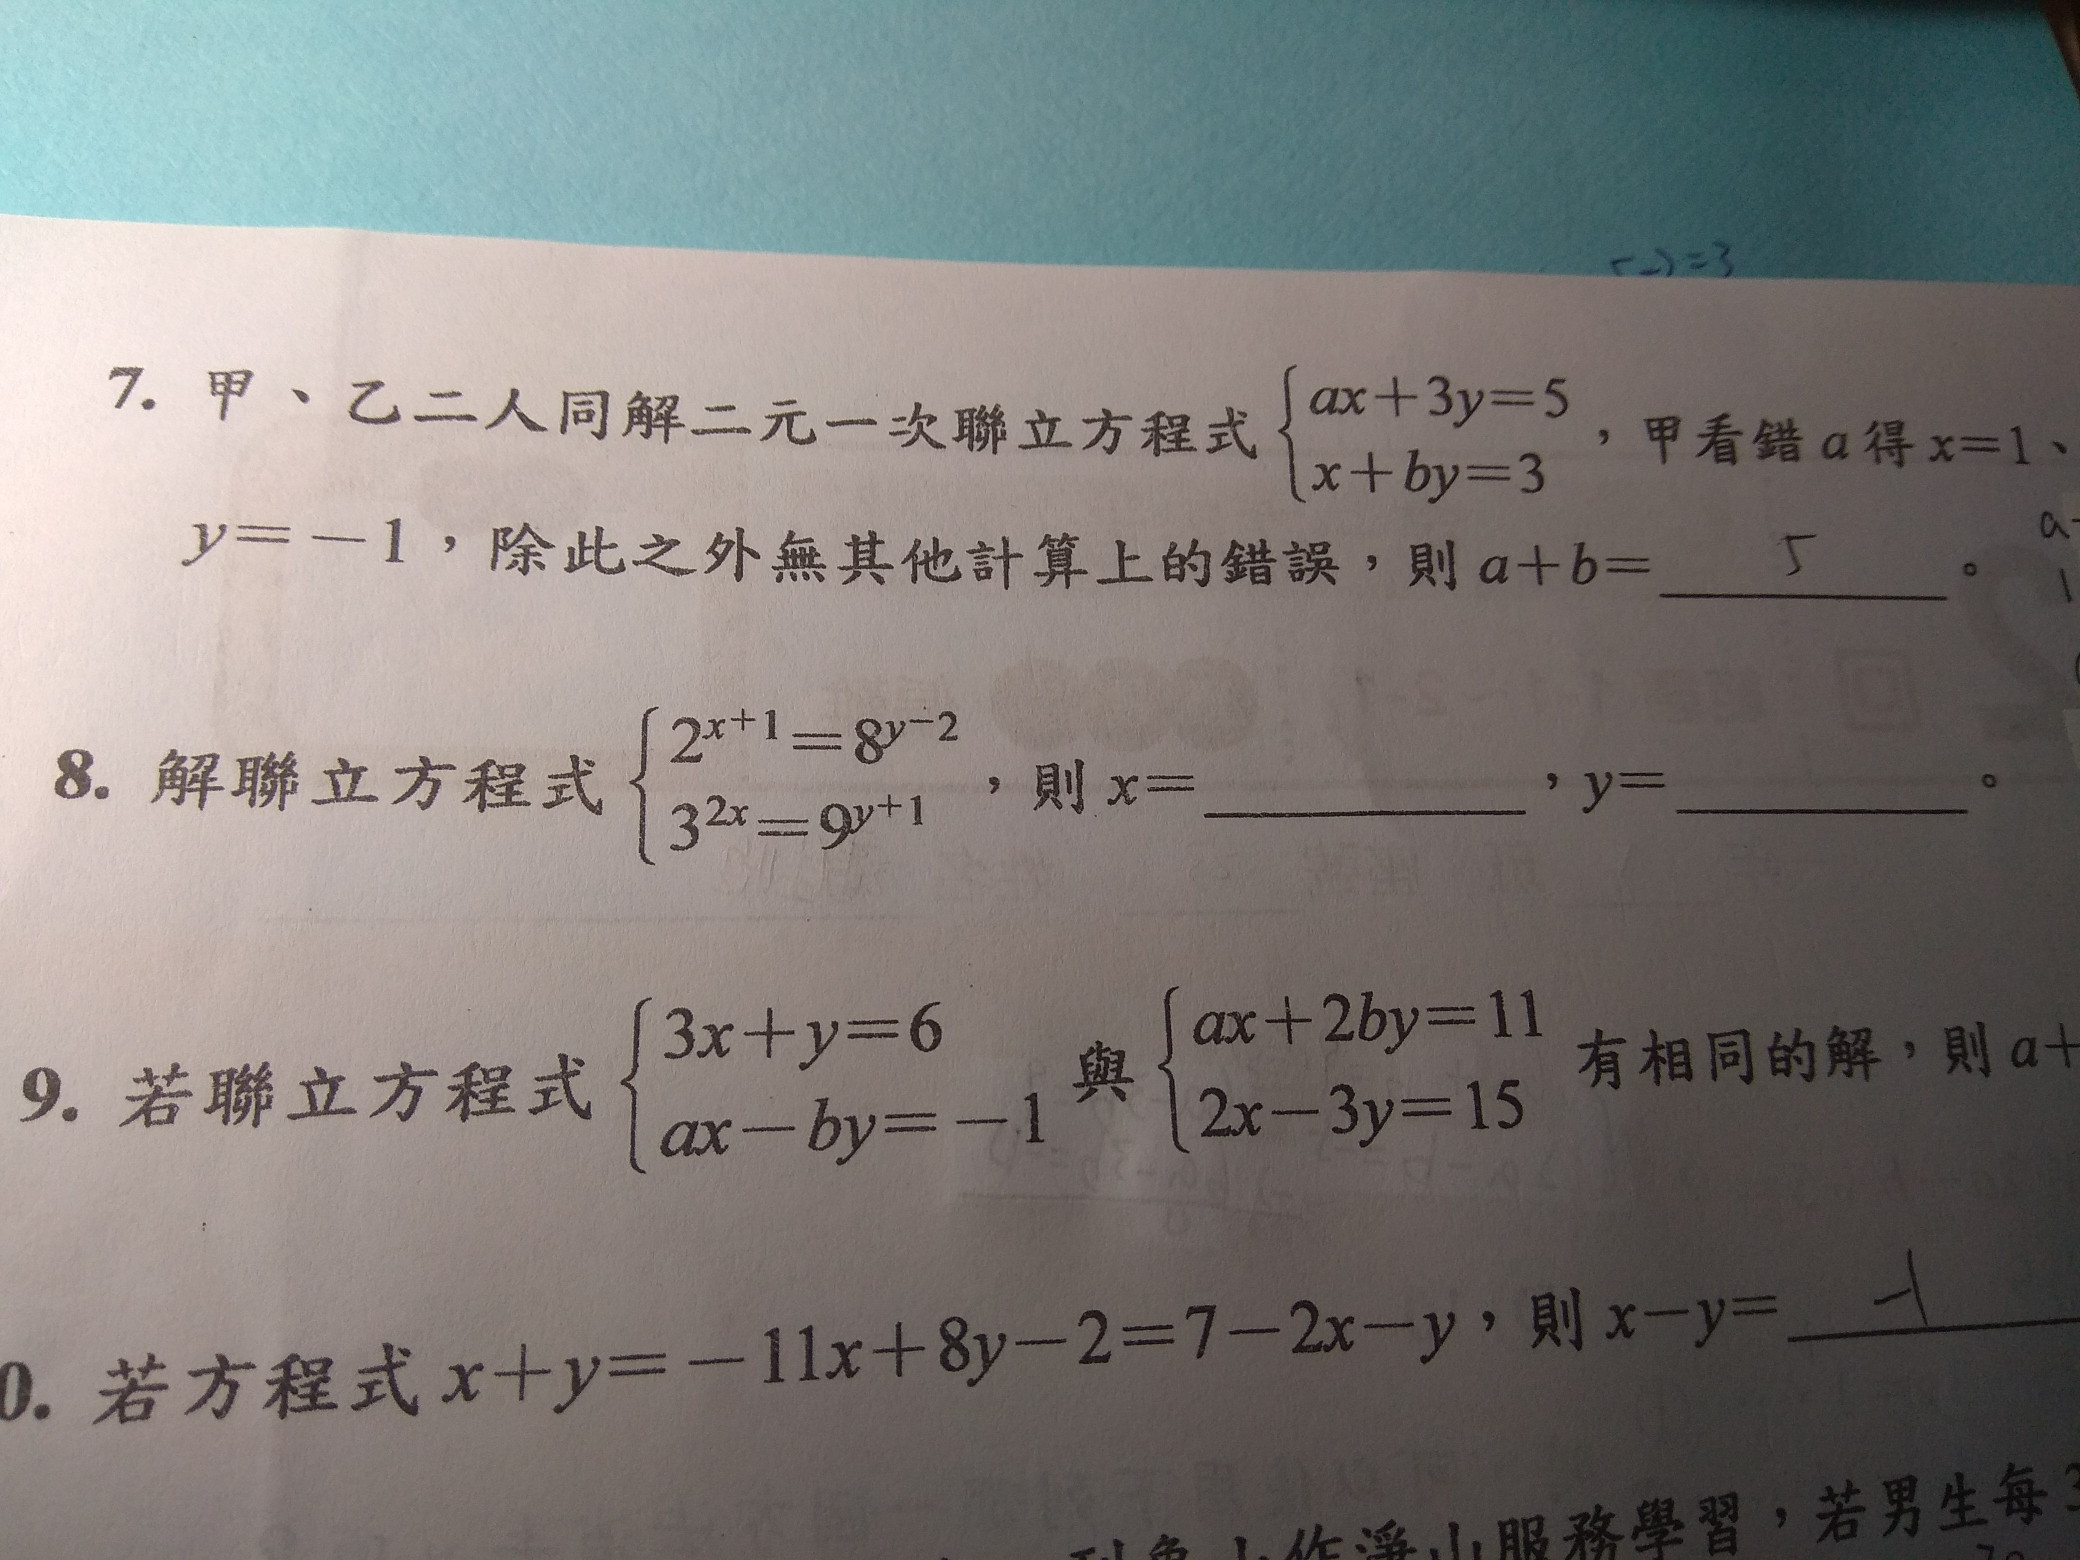 7. 甲、乙二人同解二元一次聯立方程式 { ax+3y=5 , x+by=3 ，甲看錯 a 得 x=1、
y=-1，除此之外無其他計算上的錯誤，則 a+b= 5 。
8. 解聯立方程式 { 2^{x+1}=8^{y-2} , 3^{2x}=9^{y+1} ，則 x=______，y=______。
9. 若聯立方程式 { 3x+y=6 , ax-by=-1 與 { ax+2by=11 , 2x-3y=15 有相同的解，則 a+
0. 若方程式 x+y=-11x+8y-2=7-2x-y，則 x-y= -1
服務學習，若男生每 3